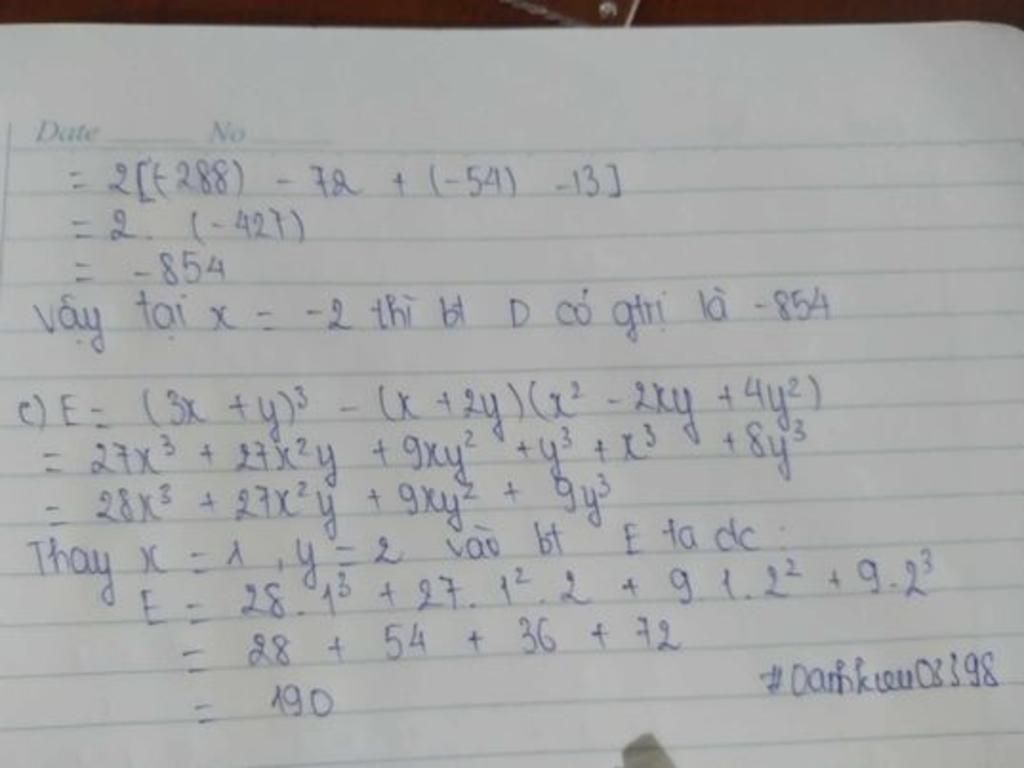 Date No
= 2[(-288) - 72 + (-54) -13]
= 2. (-427)
= -854
Vậy tại x = -2 thì bt D có gtrị là -854
c) E = (3x + y)³ - (x + 2y)(x² - 2xy + 4y²)
= 27x³ + 27x²y + 9xy² + y³ + x³ + 8y³
= 28x³ + 27x²y + 9xy² + 9y³
Thay x = 1, y = 2 vào bt E ta dc :
E = 28. 1³ + 27. 1². 2 + 9. 1. 2² + 9. 2³
= 28 + 54 + 36 + 72
= 190
#Oanhkieu03398